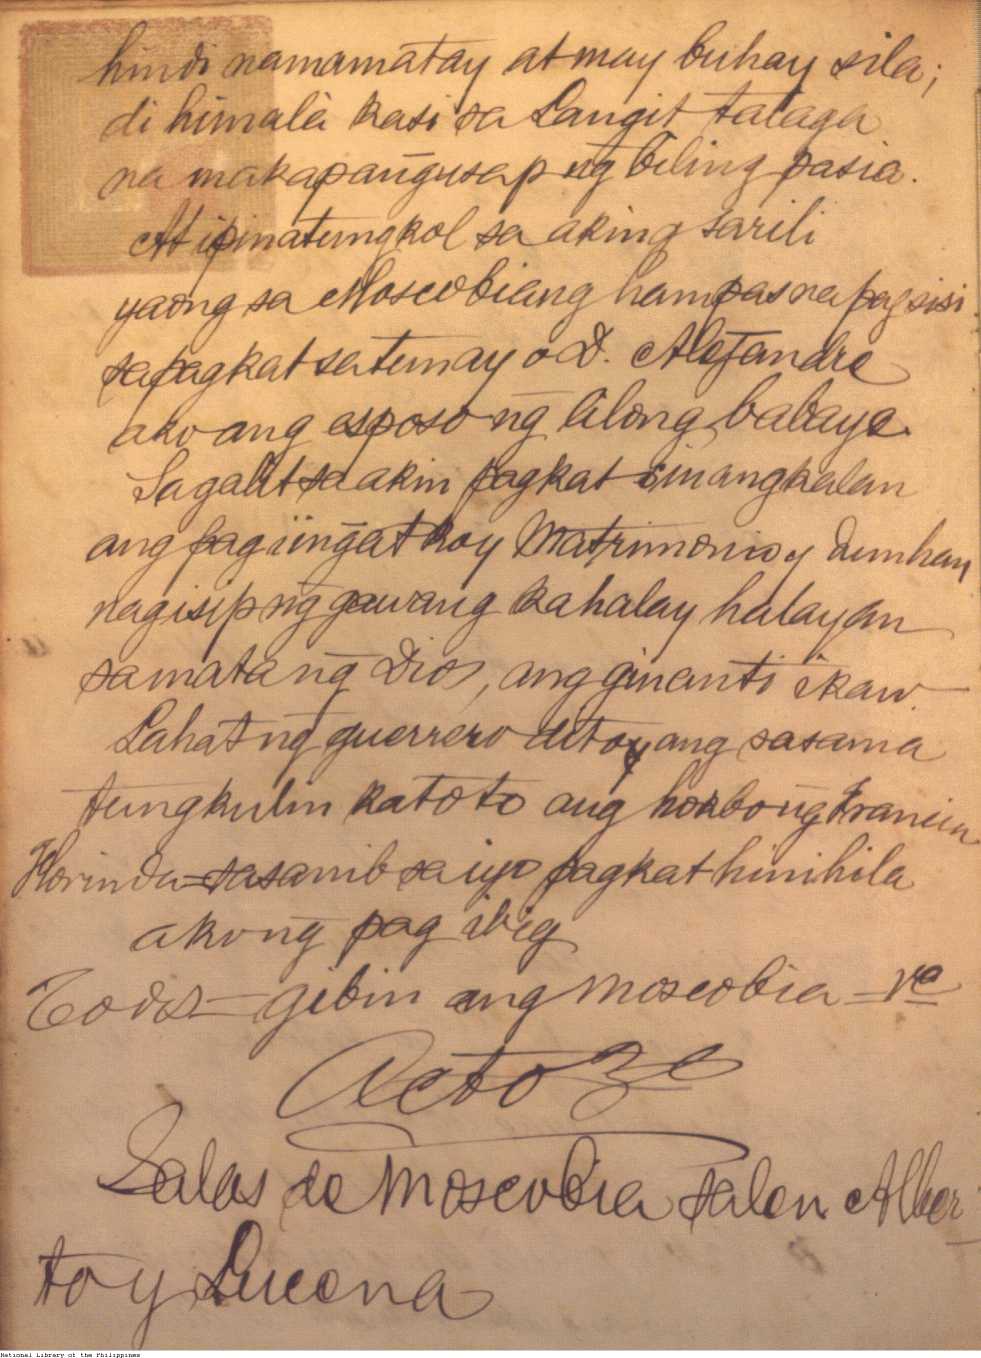 hindi namamatay at may buhay sila;
di himalâ kasi sa Langit talaga
na makapang̃usap ng̃ biling pasia.
At ipinatungkol sa aking sarili
yaong sa Moscobiang hampas na pagsisi
sapagkat sa tunay o D. Alejandre
ako ang esposo ng̃ lilong babaye.
Sa galit sa akin pagkat sinangkalan
ang pagiing̃at koy Matrimonio y
nagisip ng̃ gawang kahalay halayan
sa mata ng̃ Dios, ang ginanti ikaw.
Lahat ng̃ guerrero ditoy ang sasama
tungkulin katoto ang hokbong Francia
Florinda = sasanib sa iyo pagkat hinihila
akong̃ pag ibig
Todos = gibin ang moscobia = va
Acto 3º
Salas de Moscobia salen Alber
to y Lucena
National Library of the Philippines